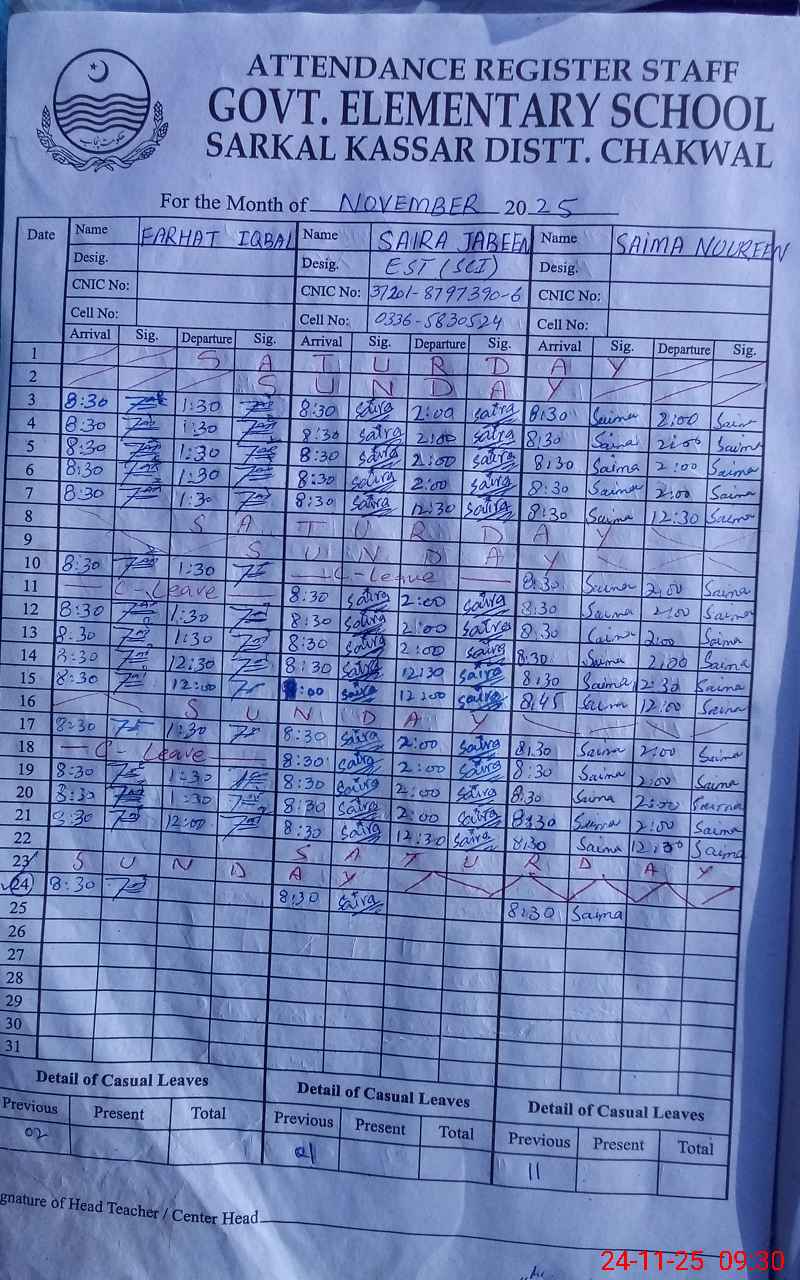 حکومت پنجاب
ATTENDANCE REGISTER STAFF
GOVT. ELEMENTARY SCHOOL
SARKAL KASSAR DISTT. CHAKWAL
For the Month of NOVEMBER 2025
Date Name FARHAT IQBAL Name SAIRA JABEEN Name SAIMA NOUREEN
Desig. Desig. EST (SCI) Desig.
CNIC No: CNIC No: 37201-8797390-6 CNIC No:
Cell No: Cell No: 0336-5830524 Cell No:
Arrival Sig. Departure Sig. Arrival Sig. Departure Sig. Arrival Sig. Departure Sig.
1 S A T U R D A Y
2 S U N D A Y
3 8:30 1:30 8:30 saira 2:00 saira 8:30 Saima 2:00 Saim
4 8:30 1:30 8:30 saira 2:00 saira 8:30 Saima 2:00 Saima
5 8:30 1:30 8:30 saira 2:00 saira 8:30 Saima 2:00 Saima
6 8:30 1:30 8:30 saira 2:00 saira 8:30 Saima 2:00 Saima
7 8:30 1:30 8:30 saira 12:30 saira 8:30 Saima 12:30 Saima
8 S A T U R D A Y
9 S U N D A Y
10 8:30 1:30 C-Leave 8:30 Saima 2:00 Saima
11 C-Leave 8:30 saira 2:00 saira 8:30 Saima 2:00 Saima
12 8:30 1:30 8:30 saira 2:00 saira 8:30 Saima 2:00 Saima
13 8:30 1:30 8:30 saira 2:00 saira 8:30 Saima 2:00 Saima
14 8:30 12:30 8:30 saira 12:30 saira 8:30 Saima 12:30 Saima
15 8:30 12:00 :00 saira 12:00 saira 8:45 Saima 12:00 Saima
16 S U N D A Y
17 8:30 1:30 8:30 saira 2:00 saira 8:30 Saima 2:00 Saima
18 C-Leave 8:30 saira 2:00 saira 8:30 Saima 2:00 Saima
19 8:30 1:30 8:30 saira 2:00 saira 8:30 Saima 2:00 Saima
20 8:30 1:30 8:30 saira 2:00 saira 8:30 Saima 2:00 Saima
21 8:30 12:00 8:30 saira 12:30 saira 8:30 Saima 12:30 Saima
22 S A T U R D A Y
23 S U N D A Y
24 8:30 8:30 saira 8:30 Saima
25
26
27
28
29
30
31
Detail of Casual Leaves Detail of Casual Leaves Detail of Casual Leaves
Previous Present Total Previous Present Total Previous Present Total
02 11
gnature of Head Teacher / Center Head
24-11-25 09:30